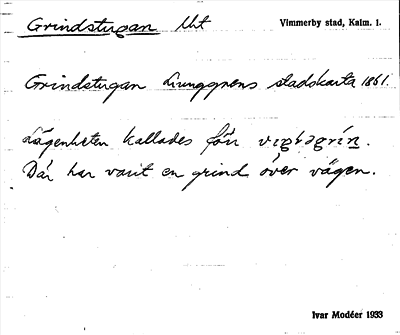 Grindstugan lht
Vimmerby stad, Kalm. l.
Grindstugan Ljunggrens stadskarta 1861.
Lägenheten kallades för vegbagrín.
Där har varit en grind över vägen.
Ivar Modéer 1933